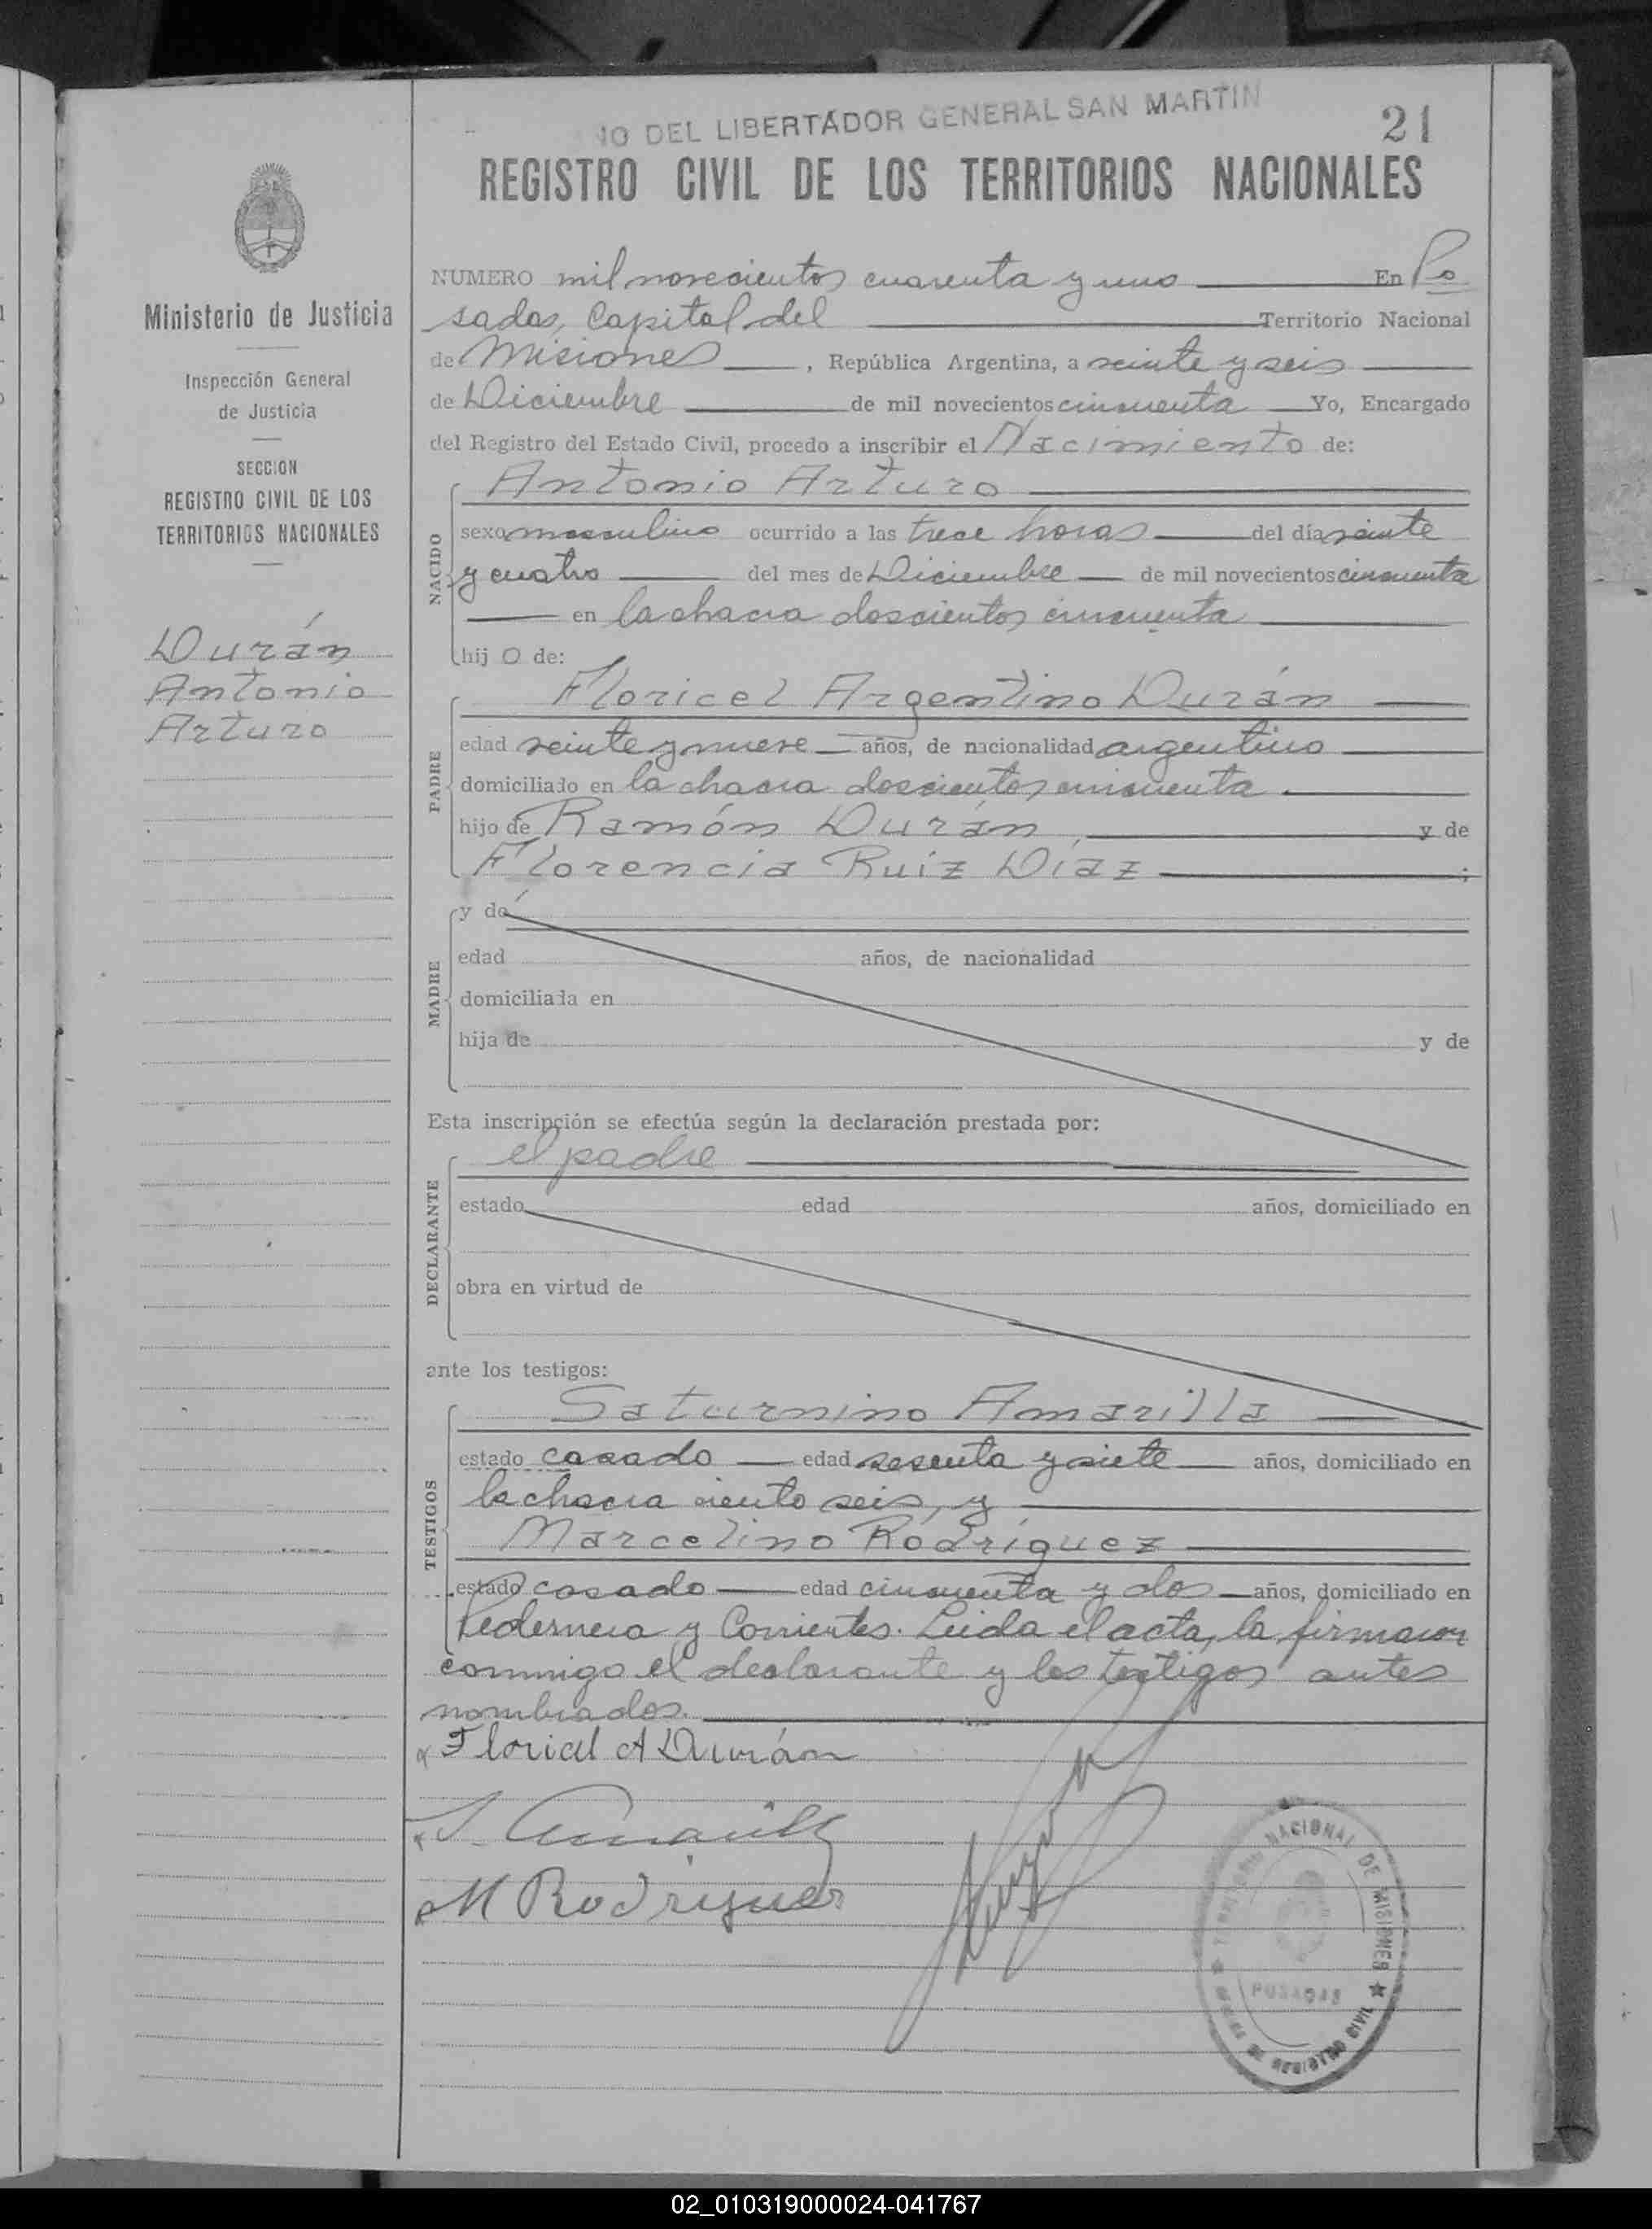 ÑO DEL LIBERTADOR GENERAL SAN MARTIN
21
REGISTRO CIVIL DE LOS TERRITORIOS NACIONALES
Ministerio de Justicia
Inspección General
de Justicia
SECCION
REGISTRO CIVIL DE LOS
TERRITORIOS NACIONALES
Durán
Antonio
Arturo
NUMERO mil novecientos cuarenta y uno En Po
sadas, Capital del Territorio Nacional
de Misiones, República Argentina, a veinte y seis
de Diciembre de mil novecientos cincuenta Yo, Encargado
del Registro del Estado Civil, procedo a inscribir el Nacimiento de:
NACIDO
Antonio Arturo
sexo masculino ocurrido a las trece horas del día veinte
y cuatro del mes de Diciembre de mil novecientos cincuenta
en la chacra doscientos cincuenta
hij o de:
PADRE
Floricel Argentino Durán
edad veinte y nueve años, de nacionalidad argentino
domiciliado en la chacra doscientos cincuenta.
hijo de Ramón Durán, y de
Florencia Ruiz Díaz ;
MADRE
y de
edad años, de nacionalidad
domiciliada en
hija de y de
Esta inscripción se efectúa según la declaración prestada por:
DECLARANTE
el padre
estado edad años, domiciliado en
obra en virtud de
ante los testigos:
TESTIGOS
Saturnino Amarilla
estado casado edad sesenta y siete años, domiciliado en
la chacra ciento seis, y
Marcelino Rodríguez
estado casado edad cincuenta y dos años, domiciliado en
Pedernera y Corrientes. Leida el acta, la firmaron
conmigo el declarante y los testigos antes
nombrados.
Floricel A Durán
S. Amarilla
M Rodriguez
TERRITORIO NACIONAL DE MISIONES
POSADAS
DE REGISTRO CIVIL
02_010319000024-041767